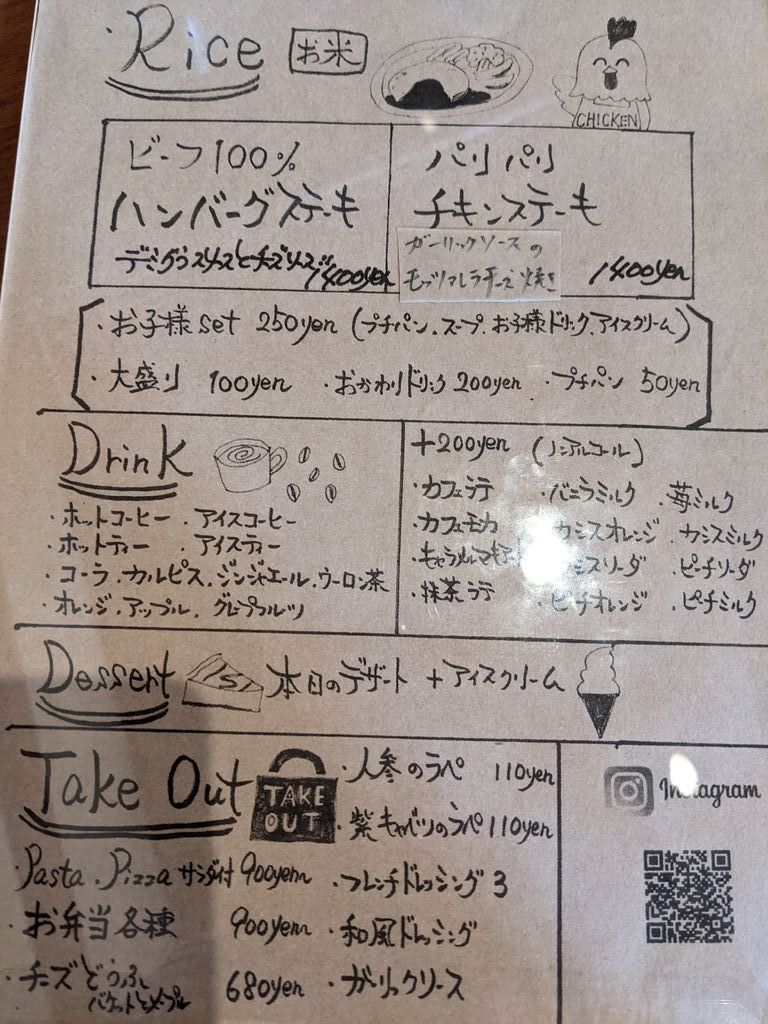 Rice お米
CHICKEN
ビーフ100%
ハンバーグステーキ
デミグラスソースとチーズソース 1400yen
パリパリ
チキンステーキ
ガーリックソースの
モッツァレラチーズ焼き 1400yen
・お子様set 250yen (プチパン、スープ、お子様ドリンク、アイスクリーム)
・大盛り 100yen ・おかわりドリンク 200yen ・プチパン 50yen
Drink
・ホットコーヒー ・アイスコーヒー
・ホットティー ・アイスティー
・コーラ ・カルピス ・ジンジャエール ・ウーロン茶
・オレンジ ・アップル ・グレープフルーツ
+200yen (ノンアルコール)
・カフェラテ ・バニラミルク ・苺ミルク
・カフェモカ カシスオレンジ ・カシスミルク
・ピーチソーダ
・抹茶ラテ ピーチオレンジ ・ピーチミルク
Dessert 本日のデザート + アイスクリーム
Take Out
TAKE
OUT
・人参のラペ 110yen
・紫キャベツのラペ 110yen
・Pasta ・Pizza サラダ付 900yen
・お弁当各種 900yen
・チーズどうふ 680yen
バケットとメープル
・フレンチドレッシング 3
・和風ドレッシング
・ガーリックソース
Instagram